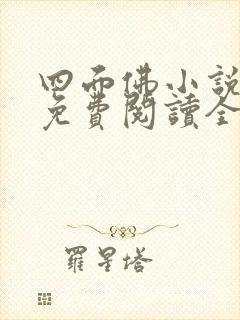 四面佛小說
免費閱讀全
羅星塔